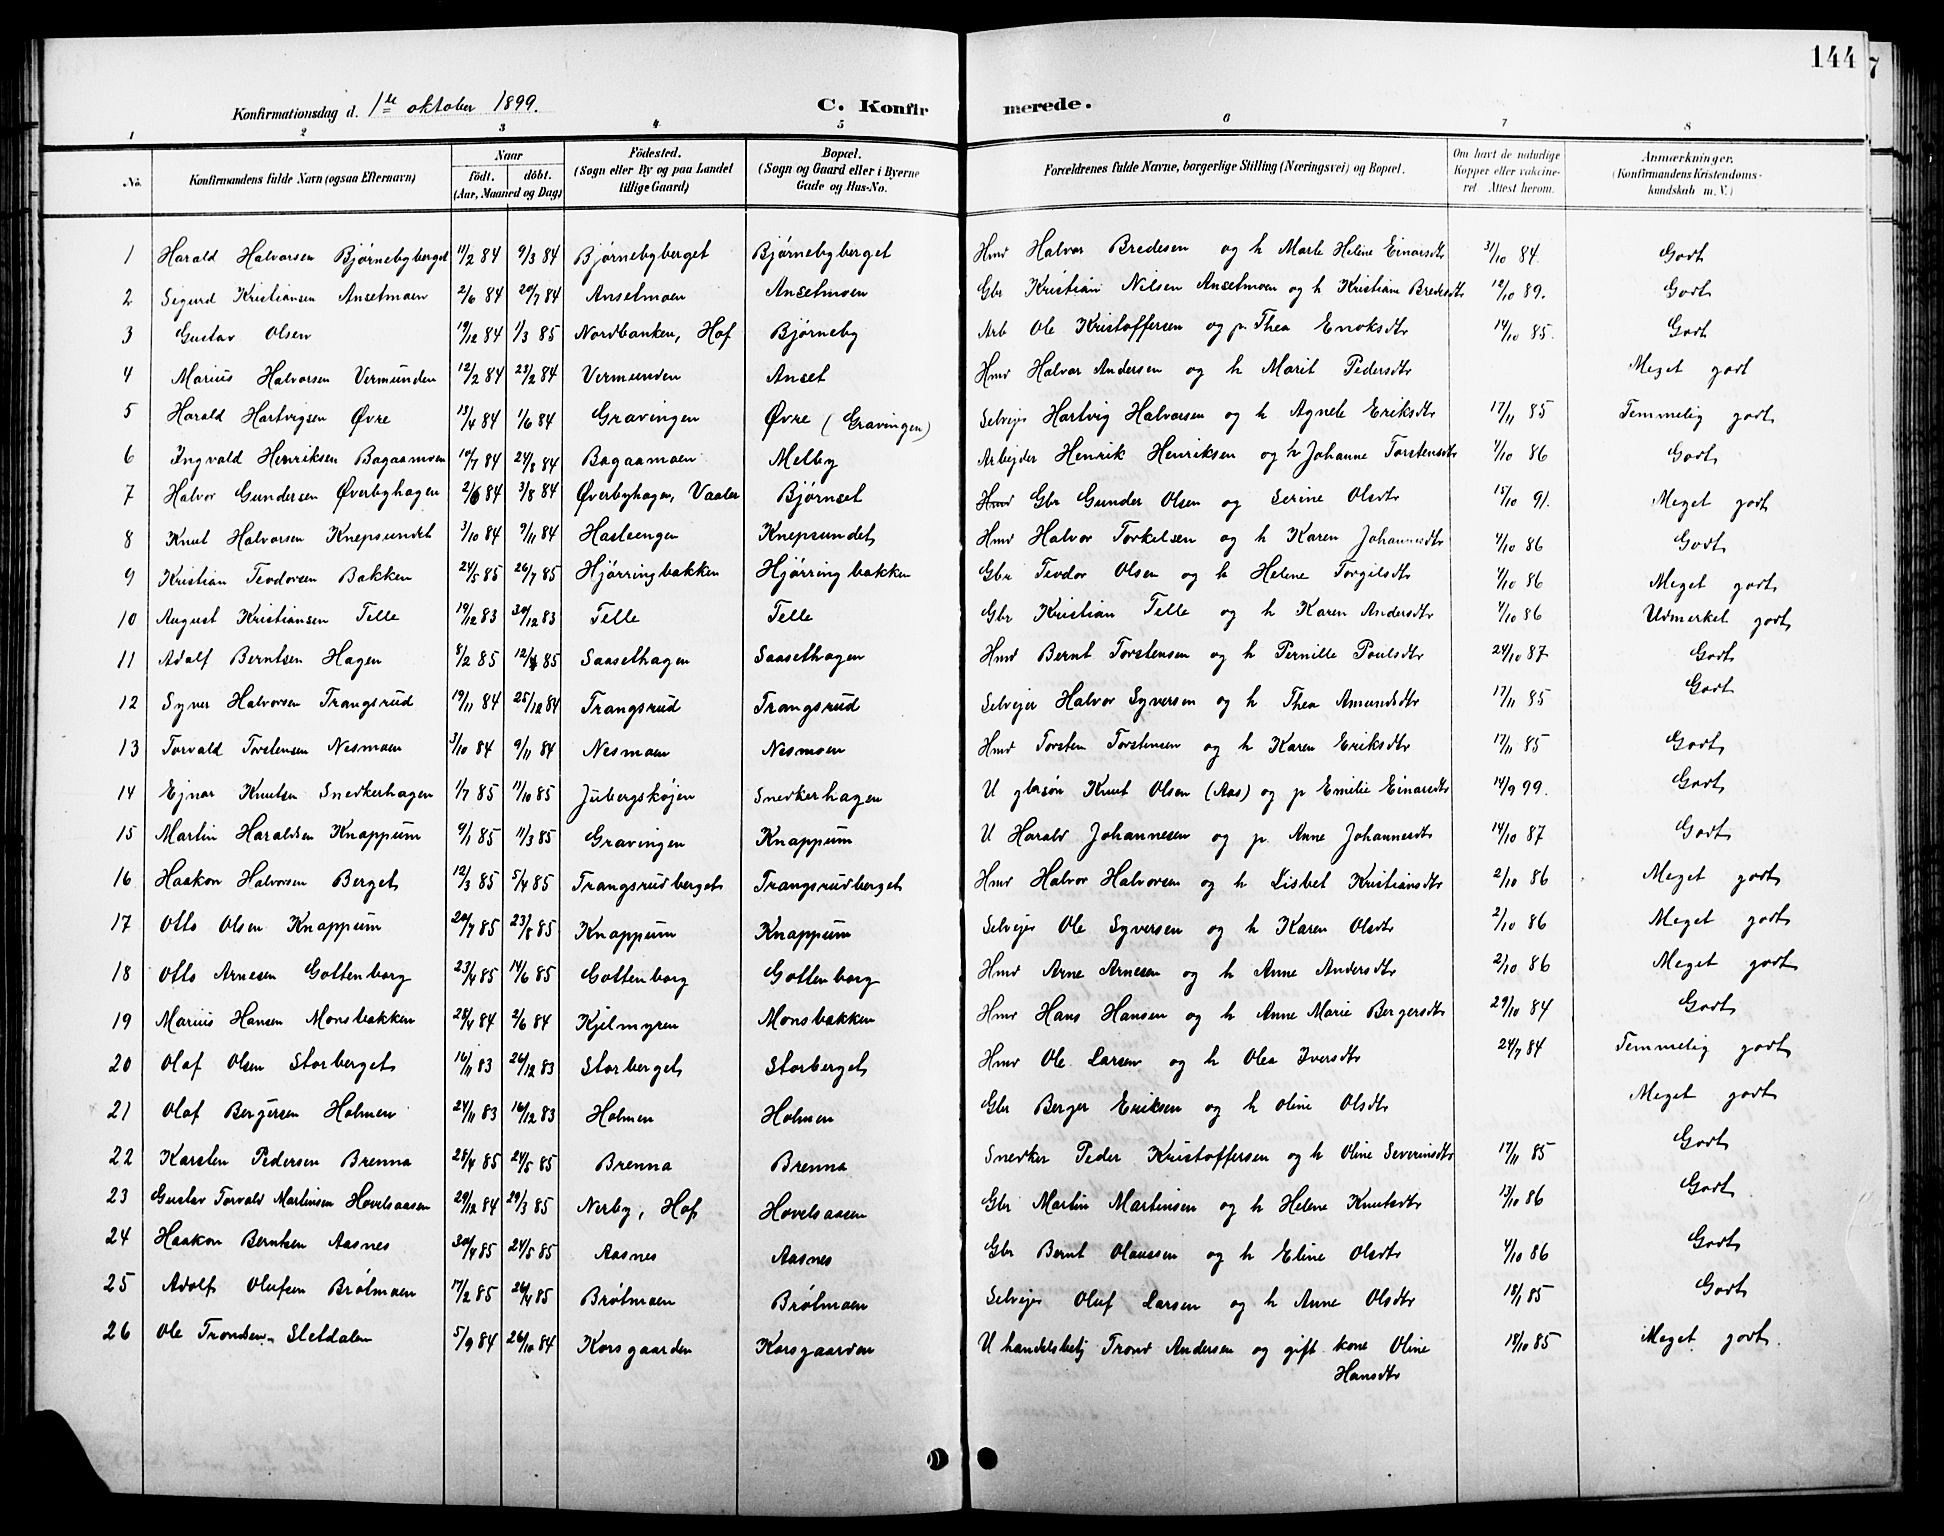 144
7
Konfirmationsdag d. 1ste oktober 1899. C. Konfirmerede.
1 2 3 4 5 6 7 8
No. Konfirmandens fulde Navn (ogsaa Efternavn) Naar födt. döbt. (Aar, Maaned og Dag) Födested. (Sogn eller By og paa Landet tillige Gaard) Bopæl. (Sogn og Gaard eller i Byerne Gade og Hus-No. Forældrenes fulde Navne, borgerlige Stilling (Næringsvei) og Bopæl. Om havt de naturlige Kopper eller vakcineret. Attest herom. Anmærkninger. (Konfirmandens Kristendomskundskab m. V.)
1 Harald Halvorsen Bjørnebyberget 11/2 84 9/3 84 Bjørnebyberget Bjørnebyberget Hmd Halvor Bredesen og h Marte Helene Einarsdtr 31/10 84. Godt
2 Sigurd Kristiansen Anselmoen 2/6 84 20/7 84 Anselmoen Anselmoen Gbr Kristian Nilsen Anselmoen og h Kristiane Bredesdtr 12/10 89. Godt
3 Gustav Olsen 19/12 84 1/3 85 Nordbanken, Hof Bjørneby Arb Ole Kristoffersen og p. Thea Enoksdtr 14/10 85. Godt
4 Marius Halvorsen Vermunden 12/2 84 23/2 84 Vermunden Anset Hmd Halvor Andersen og h Marit Pedersdtr Meget godt
5 Harald Hartvigsen Øvre 13/4 84 1/6 84 Gravingen Øvre (Gravingen) Selvejer Hartvig Halvorsen og h Agnete Eriksdtr 17/11 85 Temmelig godt
6 Ingvald Henriksen Bagaamoen 10/7 84 24/8 84 Bagaamoen Melby Arbejder Henrik Henriksen og h Johanne Torstensdtr 1/10 86 Godt
7 Halvor Gundersen Øverbyhagen 2/6 84 3/8 84 Øverbyhagen, Vaaler Bjørnset Hmd Gbr Gunder Olsen og Serine Olsdtr 15/10 91. Meget godt
8 Knut Halvorsen Knepsundet 3/10 84 9/11 84 Hasleengen Knepsundet Hmd Halvor Torkelsen og h Karen Johannesdtr 4/10 86 Godt
9 Kristian Teodorsen Bakken 24/5 85 26/7 85 Hjørringbakken Hjørringbakken Gbr Teodor Olsen og h Helene Torgilsdtr 4/10 86 Meget godt
10 August Kristiansen Telle 19/12 83 30/12 83 Telle Telle Gbr Kristian Telle og h Karen Andersdtr 4/10 86 Udmerket godt
11 Adolf Berntsen Hagen 8/2 85 12/4 85 Saasethagen Saasethagen Hmd Bernt Torstensen og h Pernille Poulsdtr 24/10 87 Godt
12 Syver Halvorsen Trangsrud 19/11 84 25/12 84 Trangsrud Trangsrud Selvejer Halvor Syversen og h Thea Amundsdtr 17/11 85 Godt
13 Torvald Torstensen Nesmoen 3/10 84 9/11 84 Nesmoen Nesmoen Hmd Torsten Torstensen og h Karen Eriksdtr 17/11 85 Godt
14 Ejnar Knutsen Snedkerhagen 1/7 85 11/10 85 Jubergskøjen Snedkerhagen U gbrsøn Knut Olsen (Aas) og p Emilie Einarsdtr 14/9 99. Godt
15 Martin Haraldsen Knappum 9/1 85 11/3 85 Gravingen Knappum U Harald Johannesen og p. Anne Johannesdtr 14/10 87 Godt
16 Haakon Halvorsen Berget 12/3 85 5/4 85 Trangsrudberget Trangsrudberget Hmd Halvor Halvorsen og h Lisbet Kristiansdtr 2/10 86 Meget godt
17 Otto Olsen Knappum 20/7 85 23/8 85 Knappum Knappum Selvejer Ole Syversen og h Karen Olsdtr 2/10 86 Meget godt
18 Otto Arnesen Gottenborg 23/4 85 14/6 85 Gottenborg Gottenborg Hmd Arne Arnesen og h Anne Andersdtr 2/10 86 Meget godt
19 Marius Hansen Monsbakken 28/4 84 2/6 84 Kjelmyren Monsbakken Hmd Hans Hansen og h Anne Marie Bergersdtr 29/10 84 Godt
20 Olaf Olsen Storberget 16/11 83 26/12 83 Storberget Storberget Hmd Ole Larsen og h Olea Iversdtr 24/7 84 Temmelig godt
21 Olaf Bergersen Holmen 24/11 83 16/12 83 Holmen Holmen Gbr Berger Eriksen og h Oline Olsdtr Meget godt
22 Karsten Pedersen Brenna 28/4 85 24/5 85 Brenna Brenna Snedker Peder Kristoffersen og h Oline Severinsdtr 17/11 85 Godt
23 Gustav Torvald Martinsen Hovelsaasen 29/12 84 29/3 85 Nerby, Hof Hovelsaasen Gbr Martin Martinsen og h Helene Knutsdtr 13/10 86 Godt
24 Haakon Berntsen Aasnes 30/4 85 24/5 85 Aasnes Aasnes Gbr Bernt Olaussen og h Eline Olsdtr 4/10 86 Godt
25 Adolf Olufsen Brøtmoen 17/2 85 26/4 85 Brøtmoen Brøtmoen Selvejer Oluf Larsen og h Anne Olsdtr 18/1 85 Godt
26 Ole Trondsen Sletdalen 5/9 84 26/10 84 Korsgaarden Korsgaarden U handelsbetj Trond Andersen og gift kone Oline Hansdtr 18/10 85 Meget godt.